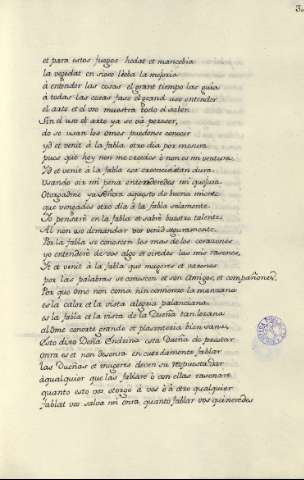 3
et para estos juegos hedat et mancebia
la vegedat en sieso lieba la mejoria
á entender las cosas el grant tiempo las guia
á todas las cosas fase el grand uso entender
el arte et el uso muestra todo el saber
Sin el uso et arte ya se va perecer,
do se usan los omes puedense conocer
yd et venit á la fabla otro dia por mesura
pues que hoy non me creedes ó non es mi ventura.
Yd et venit á la fabla esa creencia tan dura
Usando oir mi pena entenderedes mi quejura
Otorgadme ya señora aquesto de buena miente
que vengades otro dia á la fabla solamente.
Yo pensaré en la fabla et sabré vuestro talente
Al non oso demandar vos venid seguramente.
Por la fabla se conoscen los mas de los corazones
yo entenderé de vos algo et oiredes las mis rasones,
Yt et venit á la fabla que mugeres et varones
por las palabras se conoscen et son amigos et compañones.
Por que ome non coma nin comience la manzana
es la calor et la vista alegria palanciana.
es la fabla et la vista de la Dueña tan lozana
al ome conorte grande et plasenteria bien sana.
Esto dixo Doña Endrina esta dueña de prestar
onra es et non desonra en cuerdamiente fablar
las Dueñas et mugeres deven su repuesta dar
á qualquier que las fablare ó con ellas rasonare
quanto esto vos otorgo á vos é á otro qualquier
fablat vos salva mi onra quanto fablar vos quineredes